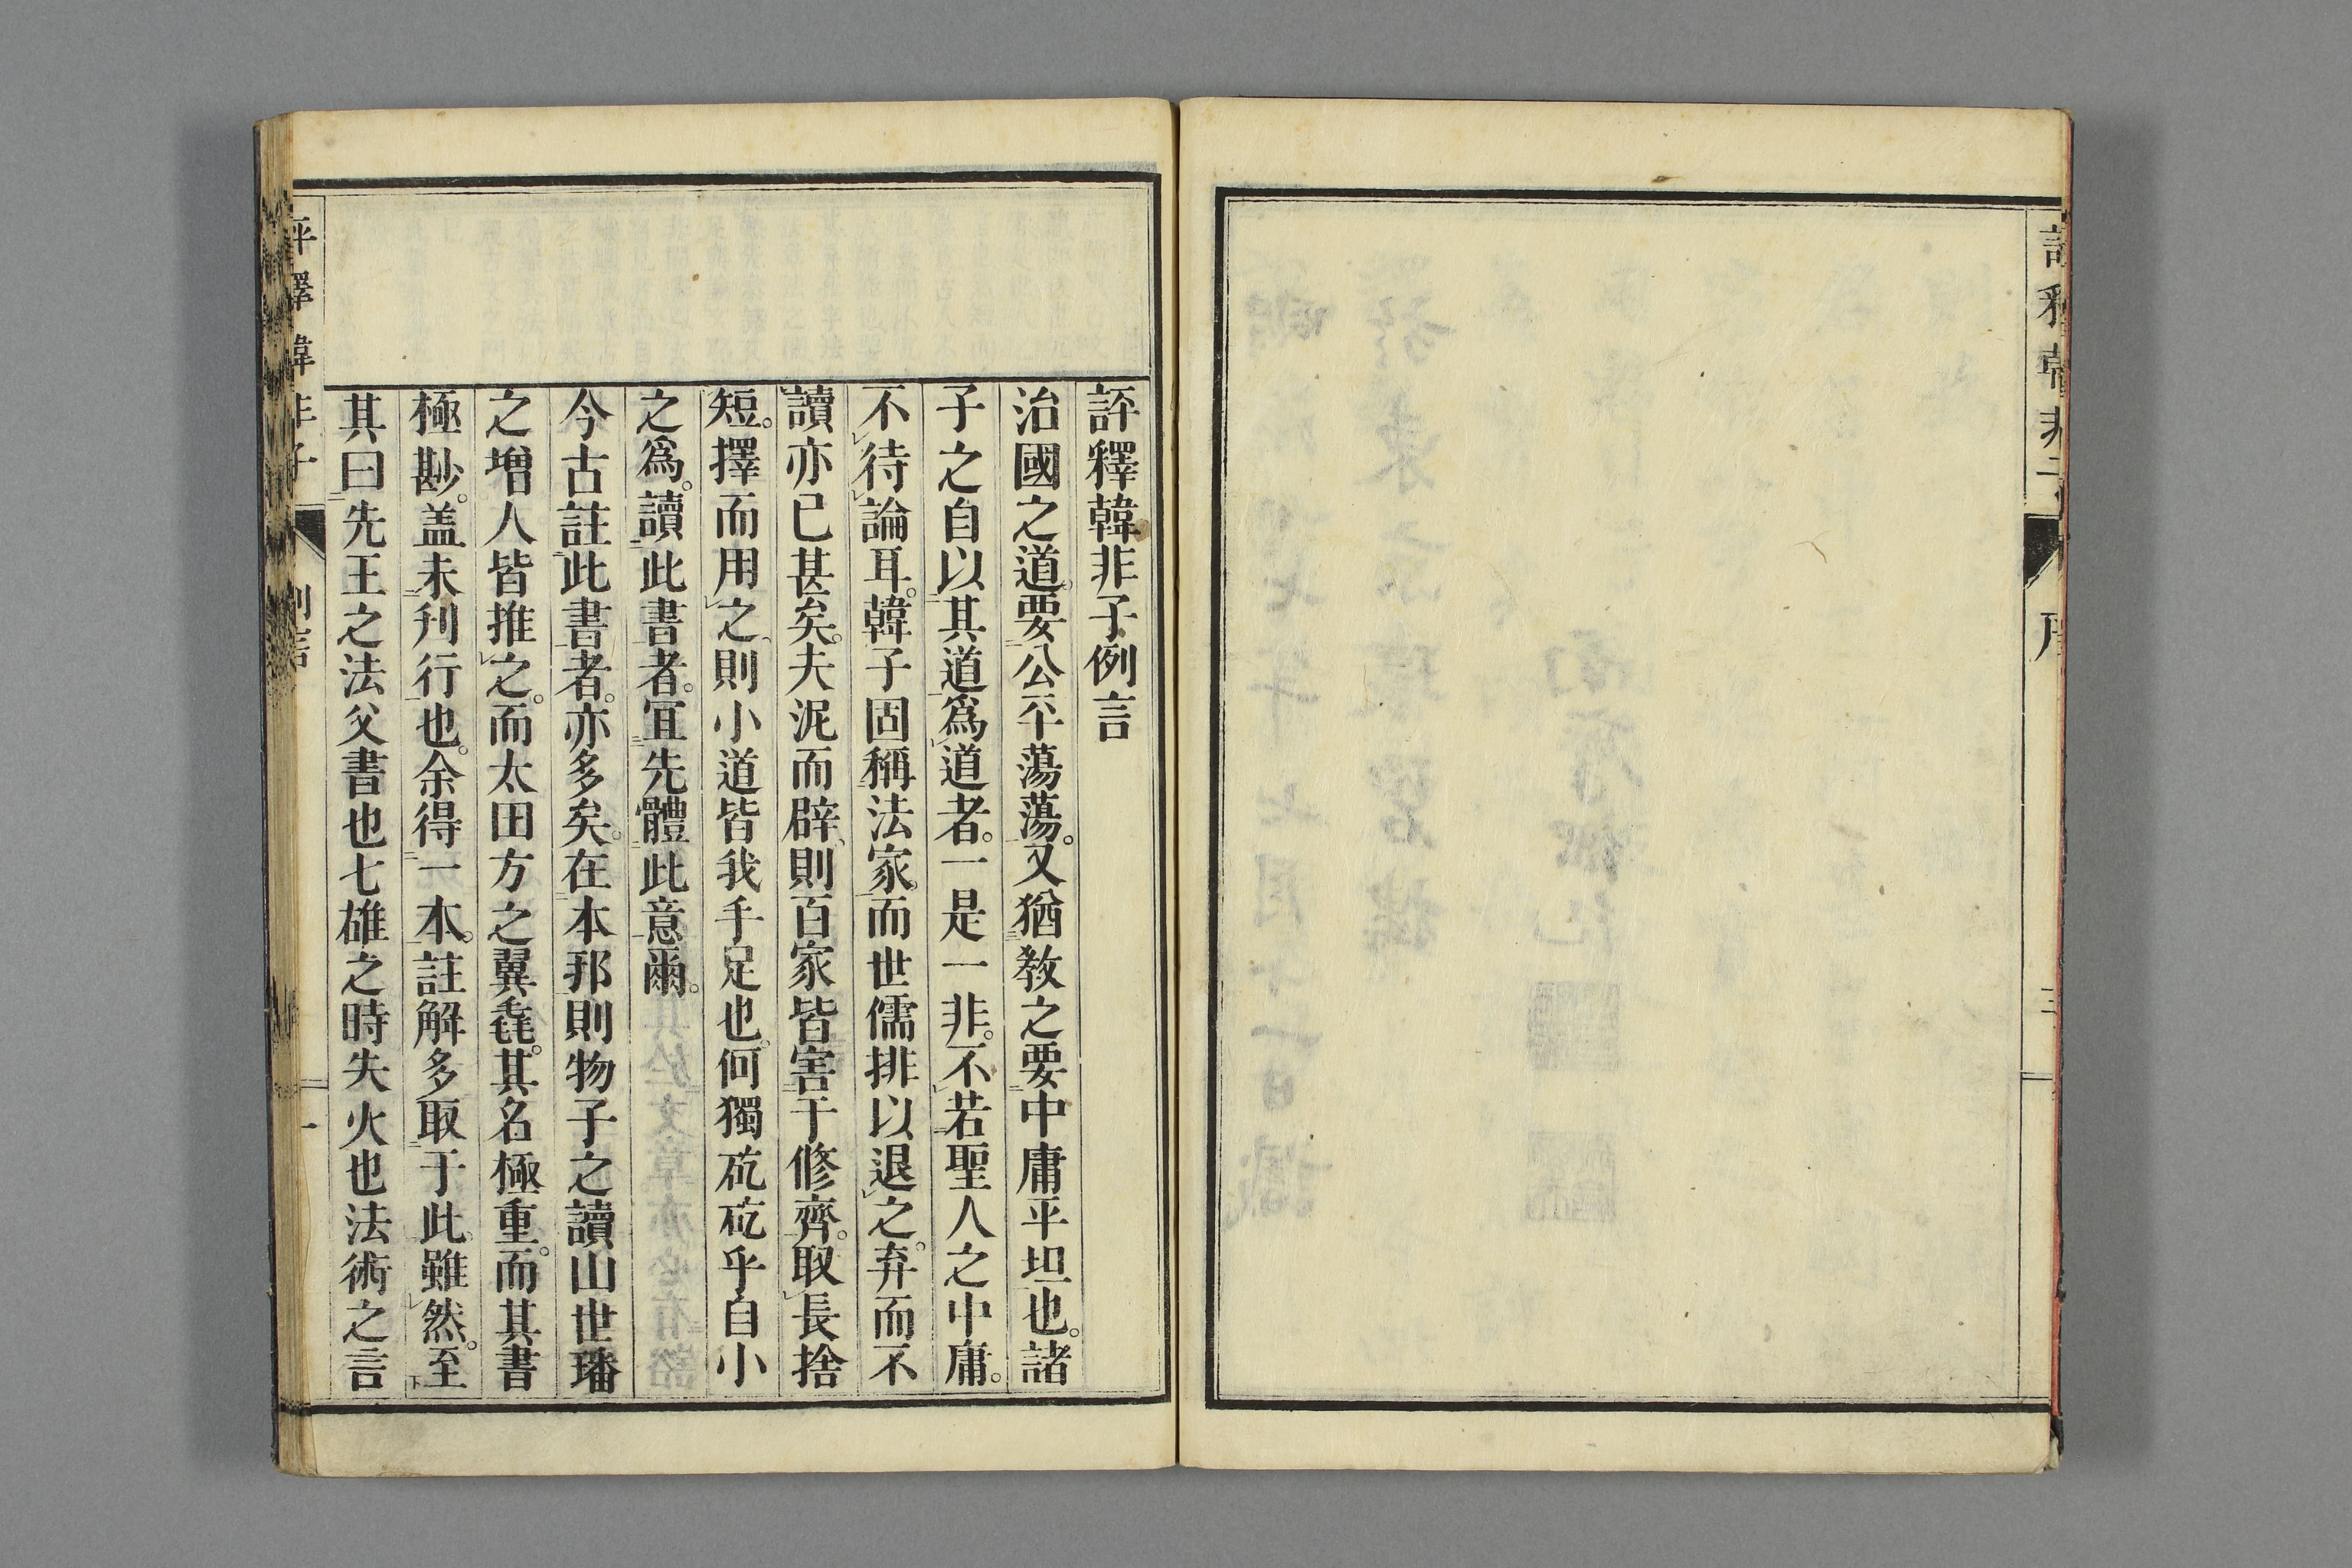 評釋韓非子例言
治國之道。要公平蕩蕩。又猶教之要中庸平坦也。諸
子之自以其道爲道者。一是一非。不若聖人之中庸。
不待論耳。韓子固稱法家。而世儒排以退之。弃而不
讀亦已甚矣。夫泥而辟、則百家皆害于修齊。取長捨
短。擇而用之、則小道皆我手足也。何獨矻矻乎自小
之爲。讀此書者。宜先體此意爾。
今古註此書者。亦多矣。在本邦則物子之讀山世璠
之增人皆推之。而太田方之翼毳。其名極重。而其書
極尠。盖未刋行也。余得一本。註解多取于此。雖然。至
其曰先王之法父書也七雄之時失火也法術之言
評釋韓非子 例言 一